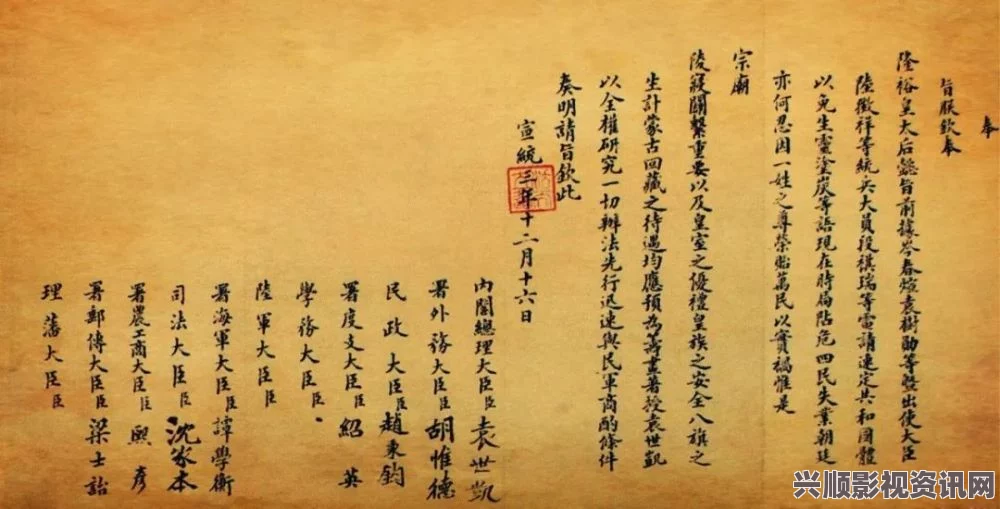 奉
旨朕欽奉
隆裕皇太后懿旨前據岑春煊袁樹勛等暨出使大臣
陸徵祥等統兵大員段祺瑞等電請速定共和國體
以免生靈塗炭等語現在時局阽危四民失業朝廷
亦何忍因一姓之尊榮貽萬民以實禍惟是
宗廟
陵寢關繫重要以及皇室之優禮皇族之安全八旗之
生計蒙古回藏之待遇均應預為籌畫著授袁世凱
以全權研究一切辦法先行迅速與民軍商酌條件
奏明請旨欽此
宣統三年十二月十六日
內閣總理大臣臣袁世凱
署外務大臣臣胡惟德
民政大臣臣趙秉鈞
署度支大臣臣紹英
學務大臣臣
陸軍大臣臣
署海軍大臣臣譚學衡
司法大臣臣沈家本
署農工商大臣臣熙彥
署郵傳大臣臣梁士詒
理藩大臣臣
兴顺影视资讯网